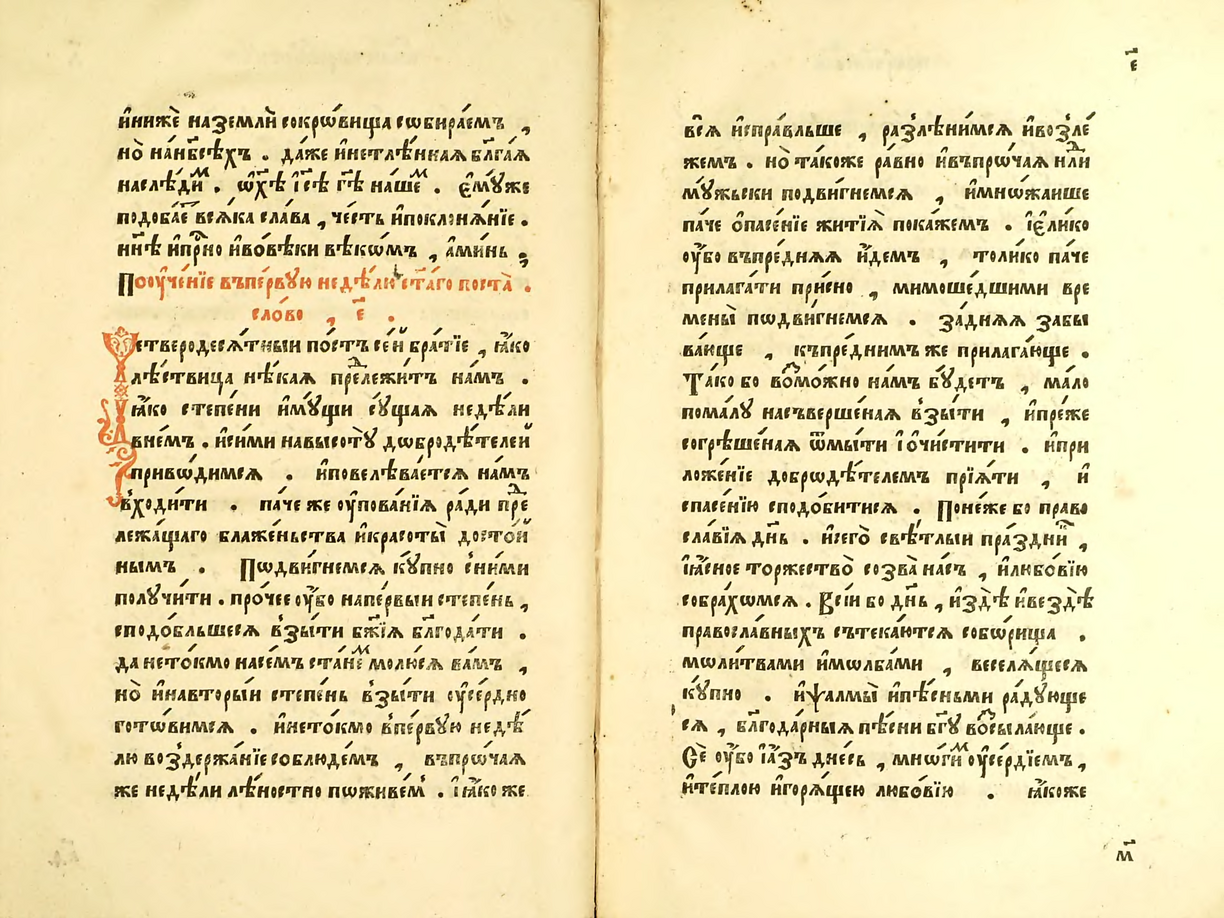 и҆нижѐ наземлѝ сокрѡ́вища сѡбира́емъ ,
но̀ нанб҃сѣ́хъ . да́же и҆нетлѣ́ннаѧ бл҃га́ѧ
наслѣ́дим . ѡ҆х҃ѣ і҆с҃ѣ гд҃ѣ на́шем . є҆мꙋ́же
подоба́е всѧ́ка сла́ва , че́сть и҆поклонѧ́нїе .
нн҃ѣ и҆при́но и҆вовѣ́ки вѣкѡ́мъ , а҆ми́нь ;
Поѹче́нїе въпе́рвꙋю недѣ́лю ст҃а́го поста̀ .
сло́во , є҃ .
Четверодесѧ́тныи по́стъ се́й бра́тїе , ꙗ҆́ко
лѣ́ствица нѣ́каѧ пре́длежитъ на́мъ .
ꙗ҆́ко степе́ни и҆мꙋ́щи сꙋ́щаѧ недѣ́ли
вне́мъ . и҆си́ми навысотꙋ̀ дѡбродѣ́телей
привѡ́димсѧ . и҆повелѣва́етсѧ на́мъ
входи́ти . па́че же ѹ҆пова́нїѧ ра́ди пред
лежа́щаго блаже́ньства и҆красоты̀ досто́й
нымъ . Пѡдви́гнемсѧ кꙋ́пно сни́ми
полꙋчи́ти . про́чее ѹ҆́бо напе́рвыи степе́нь ,
сподо́бльшесѧ взы́ти бж҃їѧ бл҃года́ти .
да нето́кмо насе́мъ ста́нем молю́сѧ ва́мъ ,
но̀ и҆навторы́и степе́нь взы́ти ѹ҆се́рдно
гото́вимсѧ . и҆нето́кмо впе́рвꙋю недѣ́
лю воздержа́нїе соблюде́мъ , въпрѡ́чаѧ
же недѣ́ли лѣ́ностно пѡживе́м . і҆ꙗ҆́ко же
є҃
всѧ̀ и҆спра́вльше , разлѣни́мсѧ и҆возле́
жемъ . но̀ та́коже ра́вно и҆въпрѡ́чаѧ нд҃ли
мꙋ́жьски подви́гнемсѧ , и҆мнѡ́жаише
па́че ѻ҆пасе́нїе житїѧ̀ пока́жемъ . і҆є҆ли́ко
ѹ҆́бо въпре́днѧѧ и҆́демъ , толи́ко па́че
прилага́ти при́сно , мимоше́дшими вре
мены̀ пѡдви́гнемсѧ . за́днѧѧ забы
ва́юще , къпре́днимъ же прилага́юще .
Та́ко бо возмо́жно на́мъ бꙋ́детъ , ма́ло
пома́лꙋ насъверше́наѧ взы́ти , и҆пре́же
согрѣше́наѧ ѿмы́ти і҆ѻчи́стити . и҆при
ложе́нїе добрѡдѣ́телемъ прїѧ́ти , и҆
спасе́нїю сподо́битисѧ . Поне́же бо право
сла́вїѧ дн҃ь . и҆сего̀ свѣ́тлыи пра́здник ,
і҆ꙗ҆́сное торжество̀ созва̀ на́съ , и҆любо́вїю
собра́хѡмсѧ . Вси́ бо дн҃ь , и҆здѣ̀ и҆вездѣ̀
правосла́вныхъ сътека́ютсѧ собѡ́рища .
мѡли́твами и҆мѡлба́ми , веселѧ́щесѧ
кꙋ́пно . и҆ѱалмы̀ и҆пѣ́сньми ра́дꙋюще
сѧ , бл҃года́рныѧ пѣ́сни бг҃ꙋ возсыла́юще .
Сѐ ѹ҆́бо і҆а҆́зъ дне́сь , мнѡ́гим ѹ҆се́рдїемъ ,
и҆те́плою и҆горѧ́щею любо́вїю . ꙗ҆́коже
м҃